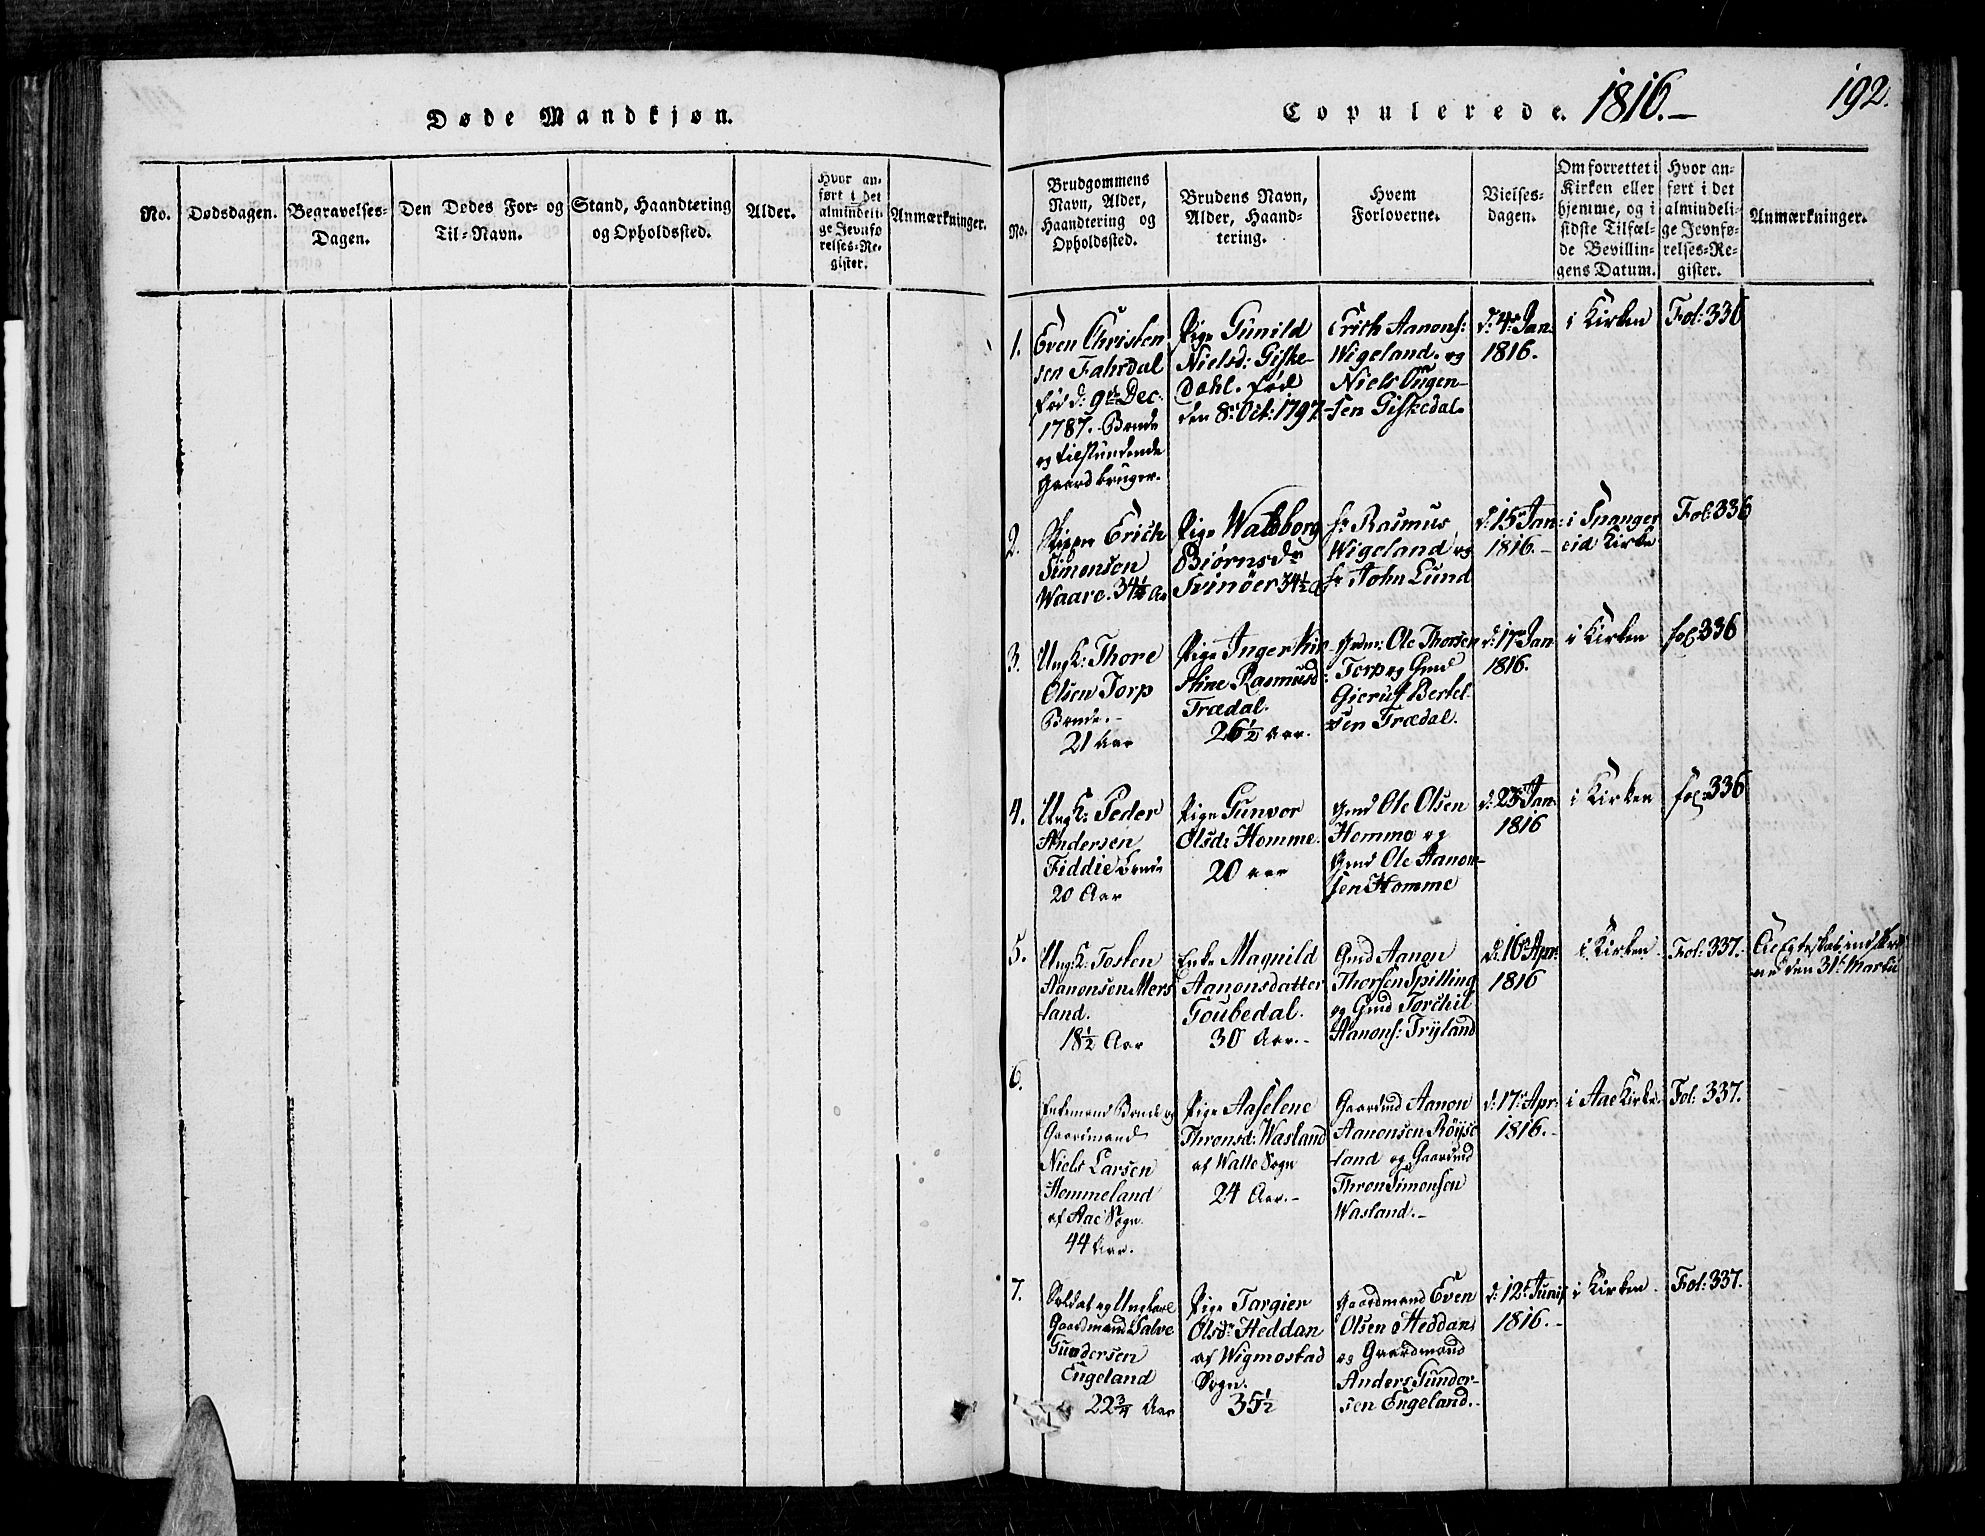 Døde Mandkjøn.
No.
Dødsdagen.
Begravelses-
Dagen.
Den Dødes For- og
Til-Navn.
Stand, Haandtering
og Opholdssted.
Alder.
Hvor an-
ført i det
almindeli-
ge Jevnfø-
relses-Re-
gister.
Anmærkninger.
Copulerede. 1816.–
192.
No.
Brudgommens
Navn, Alder,
Haandtering og
Opholdssted.
Brudens Navn,
Alder, Haand-
tering.
Hvem
Forloverne.
Vielses-
dagen.
Om forrettet i
Kirken eller
hjemme, og i
sidste Tilfæl-
de Bevillin-
gens Datum.
Hvor an-
ført i det
almindeli-
ge Jevnfø-
relses-Re-
gister.
Anmærkninger.
1.
Even Christen
sen Fahrdal
fød d: 9de Dec.
1787. Bonde
og tilstundende
Gaardbruger.
Pige Gunild
Nielsd: Giske-
dahl. fød
den 8de Oct: 1797
Erich Aanons:
Wigeland. og
Niels Ougen-
sen Giskedal.
d: 4de Jan.
1816.
i Kirken
Fol: 336
2.
Erich
Simonsen
Waare. 34¼ Aar
Pige Walborg
Biørnsdr
Svinøer 34½
hr Rasmus
Wigeland og
hr John Lund
d: 15de Jan:
1816.–
i Spanger
eid Kirke
Fol: 336
3.
Ungk: Thore
Olsen Torp
Bonde.–
21 Aar
Pige Inger Kir
stine Rasmusd
Trædal.
26½ Aar.
Gmd: Ole Thorsen
Torp og Gmd
Gjeruf Bertel-
sen Trædal.
d: 17de Jan
1816.
i Kirken
fol 336
4.
Ungk: Peder
Andersen
Fiddie Bonde
20 Aar
Pige Gunvor
Olsd: Homme.
20 aar
Gmd Ole Olsen
Homme og
Gmd Ole Aanon-
sen Homme
d: 23de Jan.
1816
i Kirken
fol. 336
5.
Ungk: Tosten
Aanonsen Mers
land.
18½ Aar
Enke Magnild
Aanonsdatter
Goubedal.
30 Aar.–
Gmd Aanon
Thorsen Spilling
og Gmd Torchil
Aanons: Tryland
d: 16de Apr:
1816
i Kirken.
Fol: 337.
den 31te Martii
6.
Enkemand Bonde og
Gaardmand
Niels Larsen
Hommeland
af Aae Sogn.
44 Aar.
Pige Aaselene
Thronsd: Wasland
af Walle Sogn
24 Aar.–
Gaardmd Aanon
Aanonsen Røyse
land og Gaardmd
Thron Simonsen
Wasland.–
d: 17de Apr:
1816.–
i Aae Kirke.
Fol: 337.
7.
Soldat og Ungkarl
Gaardmand Salve
Gundersen
Engeland
22¾ Aar
Pige Targier
Olsdr Heddan
af Wigmostad
Sogn.
35½
Gaardmand Even
Olsen Heddan
og Gaardmand
Anders Gunder-
sen Engeland.–
d: 12te Junii
1816.–
i Kirken.
Fol: 337.